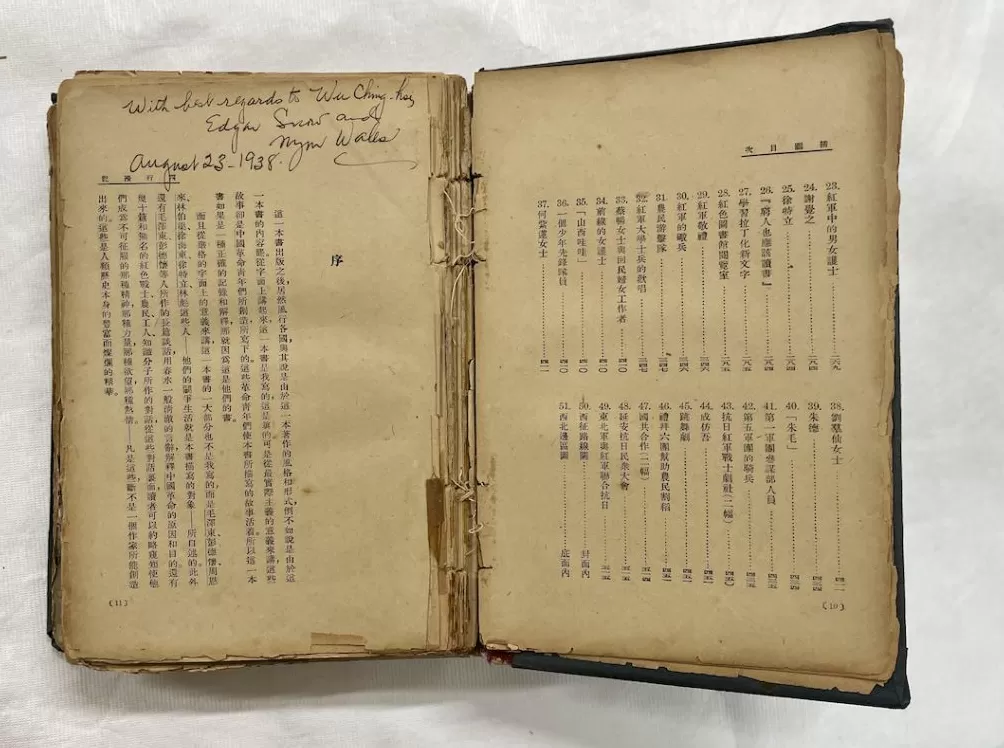 插圖目次
23. 紅軍中的男女護士
24. 謝覺之
25. 徐特立
26. 『窮人也應該讀書』
27. 學習拉丁化新文字
28. 紅色圖書館閱覽室
29. 紅軍敬禮
30. 紅軍的破兵
31. 農民游擊隊
32. 紅軍大學士兵的歌唱
33. 蔡暢女士與回民婦女工作者
34. 前線的女護士
35. 「山西娃娃」
36. 一個少年先鋒隊員
37. 何 女士
38. 劉羣仙女士
39. 朱德
40. 「朱毛」
41. 第一軍團參謀部人員
42. 第五軍團的騎兵
43. 抗日紅軍戰士劇社(二幅)
44. 成仿吾
45. 跳舞劇
46. 禮拜六團幫助農民割稻
47. 國共合作(二幅)
48. 延安抗日民衆大會
49. 東北軍與紅軍聯合抗日
50. 西征路線圖 封面內
51. 西北邊區圖 底面內
(10)
With best regards to Wu Ching-hsi
Edgar Snow and
Nym Wales
August 23 - 1938.
西行漫記
序
這一本書出版之後,居然風行各國,與其說是由於這一本著作的風格和形式,倒不如說是由於這
一本書的內容罷。從字面上講起來,這一本書是我寫的,這是真的。可是從最實際主義的意義來講,這些
故事卻是中國革命青年們所創造,所寫下的。這些革命青年們使本書所描寫的故事活着。所以這一本
書如果是一種正確的記錄和解釋,那就因爲這是他們的書。
而且從嚴格的字面上的意義來講,這一本書的一大部分也不是我寫的,而是毛澤東、彭德懷、周恩
來、林伯渠、徐海東、徐特立、林彪這些人——他們的鬭爭生活就是本書描寫的對象——所口述的。此外
還有毛澤東、彭德懷等人所作的長篇談話,用春水一般清澈的言辭,解釋中國革命的原因和目的。還有
幾十篇和無名的紅色戰士、農民、工人、知識分子所作的對話,從這些對話裏面,讀者可以約略窺知使他
們成爲不可征服的那種精神,那種力量,那種欲望,那種熱情。——凡是這些,斷不是一個作家所能創造
出來的。這些是人類歷史本身的豐富而燦爛的精華。
(11)